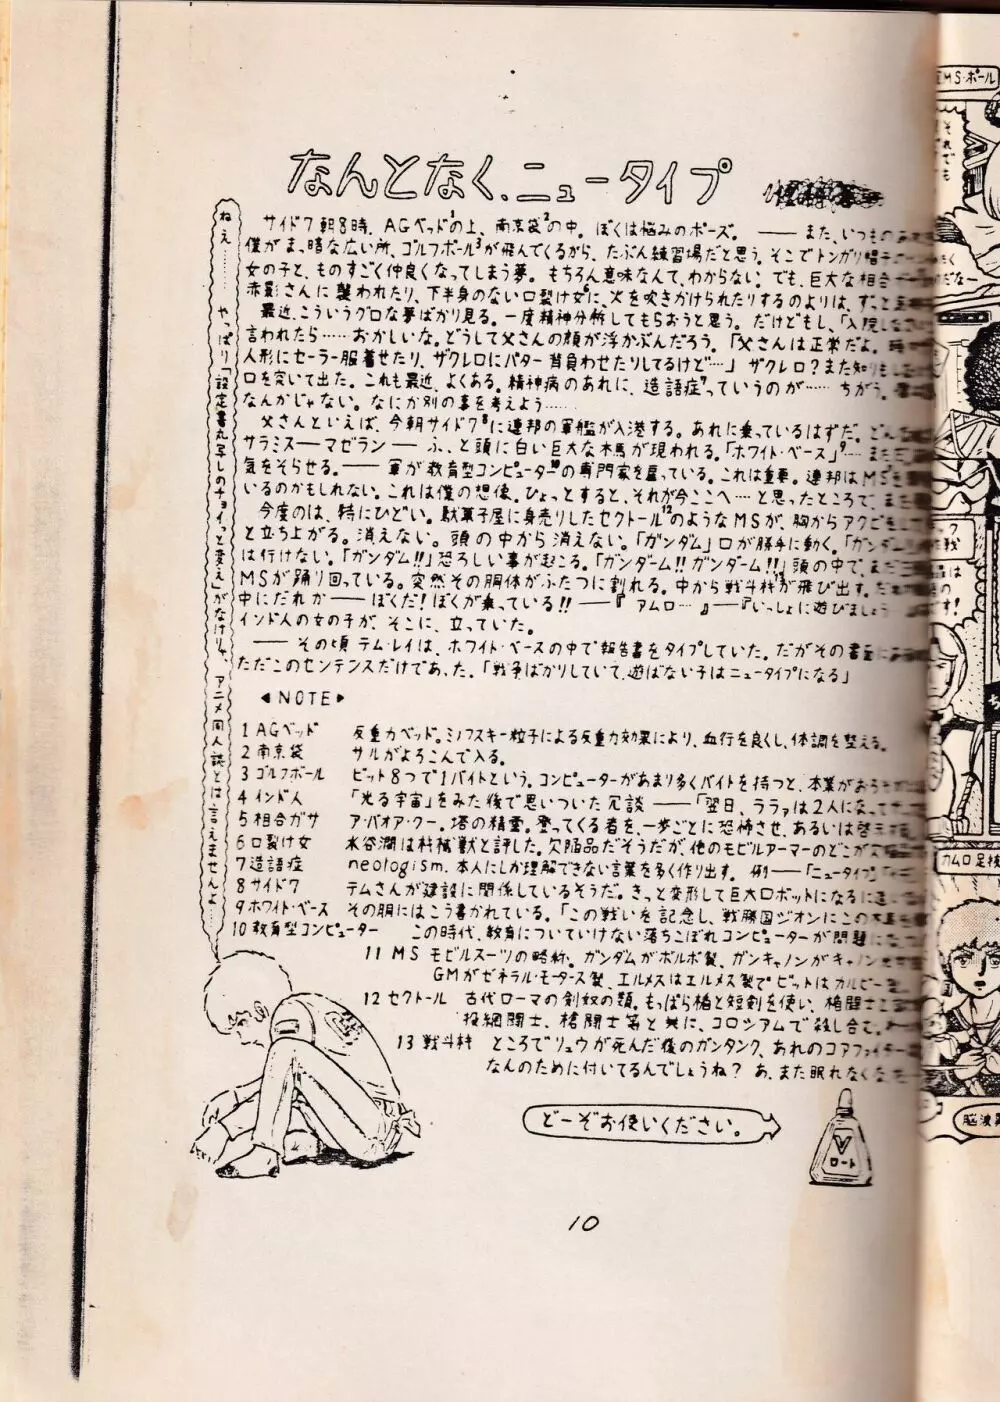 なんとなく、ニュータイプ
ねえ……… やっぱり「設定書丸写しのチョイっと変え」がなけりゃ、アニメ同人誌とは言えませんよ…
サイド7 朝8時、AGベッド¹の上、南京袋²の中。ぼくは悩みのポーズ。――また、いつもの
僕がいま、暗な広い所、ゴルフボール³が飛んでくるから、たぶん練習場だと思う。そこでトンガリ帽子
女の子と、ものすごく仲良くなってしまう夢。もちろん意味なんて、わからない。でも、巨大な相合
赤影さんに襲われたり、下半身のない口裂け女⁶に、火を吹きかけられたりするのよりは、ずっと
最近、こういうグロな夢ばかり見る。一度精神分析してもらおうと思う。だけどもし、「入院しなさい
言われたら……おかしいな。どうして父さんの顔が浮かぶんだろう。「父さんは正常だよ。
人形にセーラー服着せたり、ザクレロにパター背負わせたりしてるけど…」ザクレロ?また知りも
口を突いて出た。これも最近、よくある。精神病のあれに、造語症⁷っていうのが……ちがう。
なんかじゃない。なにか別の事を考えよう……
父さんといえば、今朝サイド7⁸に連邦の軍艦が入港する。あれに乗っているはずだ。どんな
サラミス――マゼラン――ふっと頭に白い巨大な木馬が現われる。「ホワイト・ベース」⁹…また
気をそらせる。――軍が教育型コンピューター¹⁰の専門家を雇っている。これは重要。連邦はMSを
いるのかもしれない。これは僕の想像。ひょっとすると、それが今ここへ…と思ったところで、また
今度のは、特にひどい。駄菓子屋に身売りしたセクトール¹²のようなMSが、胸からアクビをして
と立ち上がる。消えない。頭の中から消えない。「ガンダム」口が勝手に動く。「ガンダム
は行けない。「ガンダム!!」恐ろしい事が起こる。「ガンダーム!!ガンダーム!!」頭の中で、また三
MSが踊り回っている。突然その胴体がふたつに割れる。中から戦斗枠¹³が飛び出す。
中にだれか――ぼくだ!ぼくが乗っている!!――『アムロ…』――『いっしょに遊びましょう
インド人の女の子が、そこに、立っていた。
――その頃テム・レイは、ホワイト・ベースの中で報告書をタイプしていた。だがその書面に
ただこのセンテンスだけであった。「戦争ばかりしていて、遊ばない子はニュータイプになる」
◀NOTE▶
1 AGベッド 反重力ベッド。ミノフスキー粒子による反重力効果により、血行を良くし、体調を整える。
2 南京袋 サルがよろこんで入る。
3 ゴルフボール ビット8つで1バイトという。コンピューターがあまり多くバイトを持つと、本業がおろそか
4 インド人 「光る宇宙」をみた後で思いついた冗談――「翌日、ララァは2人になって
5 相合ガサ ア・バオア・クー。塔の精霊。登ってくる者を、一歩ごとに恐怖させ、あるいは啓示
6 口裂け女 水谷潤は枠械獣と評した。欠陥品だそうだが、他のモビルアーマーのどこが
7 造語症 neologism. 本人にしか理解できない言葉を多く作り出す。例――「ニュータイプ」
8 サイド7 テムさんが建設に関係しているそうだ。きっと変形して巨大ロボットになるに違い
9 ホワイト・ベース その胴にはこう書かれている。「この戦いを記念し、戦勝国ジオンにこの木馬を
10 教育型コンピューター この時代、教育についていけない落ちこぼれコンピューターが問題になって
11 MS モビルスーツの略称。ガンダムがボルボ製、ガンキャノンがキャノン
GMがゼネラル・モータース製、エルメスはエルメス製でビットはカルビー
12 セクトール 古代ローマの剣奴の類。もっぱら楯と短剣を使い、楯闘士
投網闘士、槍闘士等と共に、コロシアムで殺し合
13 戦斗枠 ところでリュウが死んだ後のガンタンク、あれのコアファイター
なんのために付いてるんでしょうね? あ、また眠れなくな
どーぞお使いください。
V
ロート
10
MS・ボール
それでも
カムロ足枝
脳波